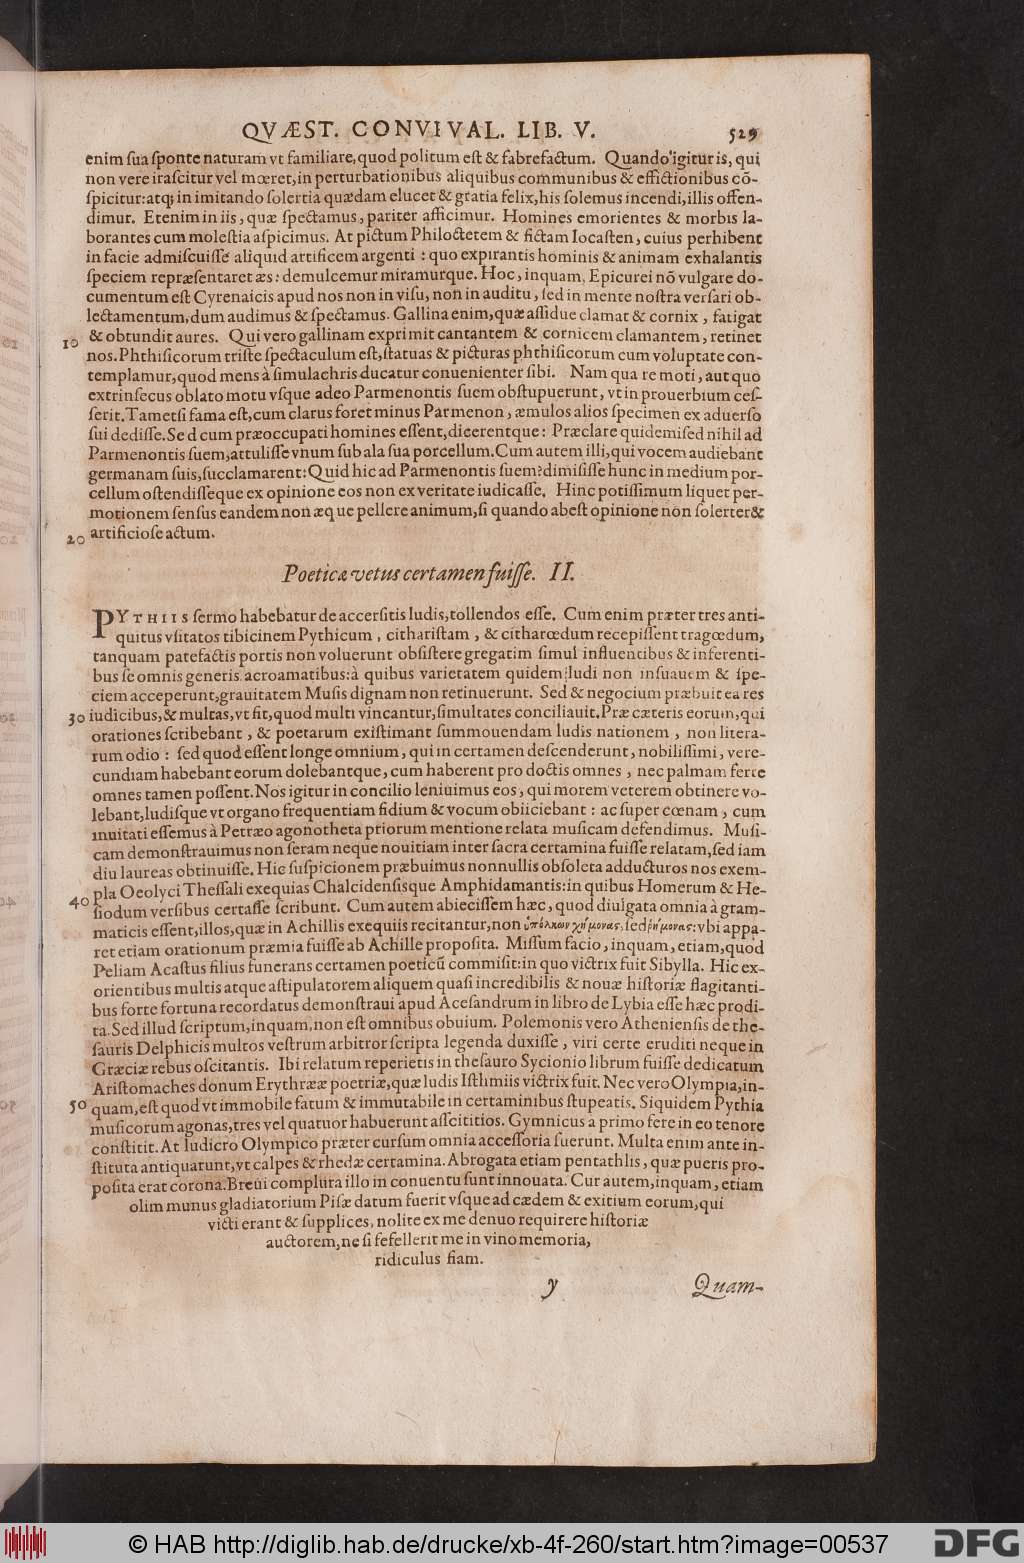 QVÆST. CONVIVAL. LIB. V. 529
enim ſua ſponte naturam vt familiare, quod politum eſt & fabrefactum. Quando igitur is, qui
non vere iraſcitur vel mœret, in perturbationibus aliquibus communibus & effictionibus cō-
ſpicitur: atq; in imitando ſolertia quædam elucet & gratia felix, his ſolemus incendi, illis offen-
dimur. Etenim in iis, quæ ſpectamus, pariter afficimur. Homines emorientes & morbis la-
borantes cum moleſtia aſpicimus. At pictum Philoctetem & fictam Iocaſten, cuius perhibent
in facie admiſcuiſſe aliquid artificem argenti: quo expirantis hominis & animam exhalantis
ſpeciem repræſentaret æs: demulcemur miramurque. Hoc, inquam, Epicurei nō vulgare do-
cumentum eſt Cyrenaicis apud nos non in viſu, non in auditu, ſed in mente noſtra verſari ob-
lectamentum, dum audimus & ſpectamus. Gallina enim, quæ aſſidue clamat & cornix, fatigat
10 & obtundit aures. Qui vero gallinam exprimit cantantem & cornicem clamantem, retinet
nos. Phthiſicorum triſte ſpectaculum eſt, ſtatuas & picturas phthiſicorum cum voluptate con-
templamur, quod mens à ſimulachris ducatur conuenienter ſibi. Nam qua re moti, aut quo
extrinſecus oblato motu vſque adeo Parmenontis ſuem obſtupuerunt, vt in prouerbium ceſ-
ſerit. Tametſi fama eſt, cum clarus foret minus Parmenon, æmulos alios ſpecimen ex aduerſo
ſui dediſſe. Sed cum præoccupati homines eſſent, dicerentque: Præclare quidem: ſed nihil ad
Parmenontis ſuem, attuliſſe vnum ſub ala ſua porcellum. Cum autem illi, qui vocem audiebant
germanam ſuis, ſucclamarent: Quid hic ad Parmenontis ſuem? dimiſiſſe hunc in medium por-
cellum oſtendiſſeque ex opinione eos non ex veritate iudicaſſe. Hinc potiſſimum liquet per-
motionem ſenſus eandem non æque pellere animum, ſi quando abeſt opinione non ſolerter &
20 artificioſe actum.
Poeticæ vetus certamen fuiſſe. II.
PYTHIIS ſermo habebatur de accerſitis ludis, tollendos eſſe. Cum enim præter tres anti-
quitus vſitatos tibicinem Pythicum, cithariſtam, & citharœdum recepiſſent tragœdum,
tanquam patefactis portis non voluerunt obſiſtere gregatim ſimul influentibus & inferenti-
bus ſe omnis generis acroamatibus: à quibus varietatem quidem ludi non inſuauem & ſpe-
ciem acceperunt, grauitatem Muſis dignam non retinuerunt. Sed & negocium præbuit ea res
30 iudicibus, & multas, vt fit, quod multi vincantur, ſimultates conciliauit. Præ cæteris eorum, qui
orationes ſcribebant, & poetarum exiſtimant ſummouendam ludis nationem, non litera-
rum odio: ſed quod eſſent longe omnium, qui in certamen deſcenderunt, nobiliſſimi, vere-
cundiam habebant eorum dolebantque, cum haberent pro doctis omnes, nec palmam ferre
omnes tamen poſſent. Nos igitur in concilio leniuimus eos, qui morem veterem obtinere vo-
lebant, ludiſque vt organo frequentiam fidium & vocum obiiciebant: ac ſuper cœnam, cum
inuitati eſſemus à Petræo agonotheta priorum mentione relata muſicam defendimus. Muſi-
cam demonſtrauimus non ſeram neque nouitiam inter ſacra certamina fuiſſe relatam, ſed iam
diu laureas obtinuiſſe. Hic ſuſpicionem præbuimus nonnullis obſoleta adducturos nos exem-
40 pla Oeolyci Theſſali exequias Chalcidenſisque Amphidamantis: in quibus Homerum & He-
ſiodum verſibus certaſſe ſcribunt. Cum autem abieciſſem hæc, quod diuulgata omnia à gram-
maticis eſſent, illos, quæ in Achillis exequiis recitantur, non ſed ῥήμονας: vbi appa-
ret etiam orationum præmia fuiſſe ab Achille propoſita. Miſſum facio, inquam, etiam, quod
Peliam Acaſtus filius funerans certamen poeticū commiſit: in quo victrix fuit Sibylla. Hic ex-
orientibus multis atque aſtipulatorem aliquem quaſi incredibilis & nouæ hiſtoriæ flagitanti-
bus forte fortuna recordatus demonſtraui apud Aceſandrum in libro de Lybia eſſe hæc prodi-
ta. Sed illud ſcriptum, inquam, non eſt omnibus obuium. Polemonis vero Athenienſis de the-
ſauris Delphicis multos veſtrum arbitror ſcripta legenda duxiſſe, viri certe eruditi neque in
Græciæ rebus oſcitantis. Ibi relatum reperietis in theſauro Sycionio librum fuiſſe dedicatum
Ariſtomaches donum Erythrææ poetriæ, quæ ludis Iſthmiis victrix fuit. Nec vero Olympia, in-
50 quam, eſt quod vt immobile fatum & immutabile in certaminibus ſtupeatis. Siquidem Pythia
muſicorum agonas, tres vel quatuor habuerunt aſſcititios. Gymnicus a primo fere in eo tenore
conſtitit. At ludicro Olympico præter curſum omnia acceſſoria fuerunt. Multa enim ante in-
ſtituta antiquarunt, vt calpes & rhedæ certamina. Abrogata etiam pentathlis, quæ pueris pro-
poſita erat corona. Breui complura illo in conuentu ſunt innouata. Cur autem, inquam, etiam
olim munus gladiatorium Piſæ datum fuerit vſque ad cædem & exitium eorum, qui
victi erant & ſupplices, nolite ex me denuo requirere hiſtoriæ
auctorem, ne ſi fefellerit me in vino memoria,
ridiculus fiam.
y Quam-
© HAB http://diglib.hab.de/drucke/xb-4f-260/start.htm?image=00537 DFG